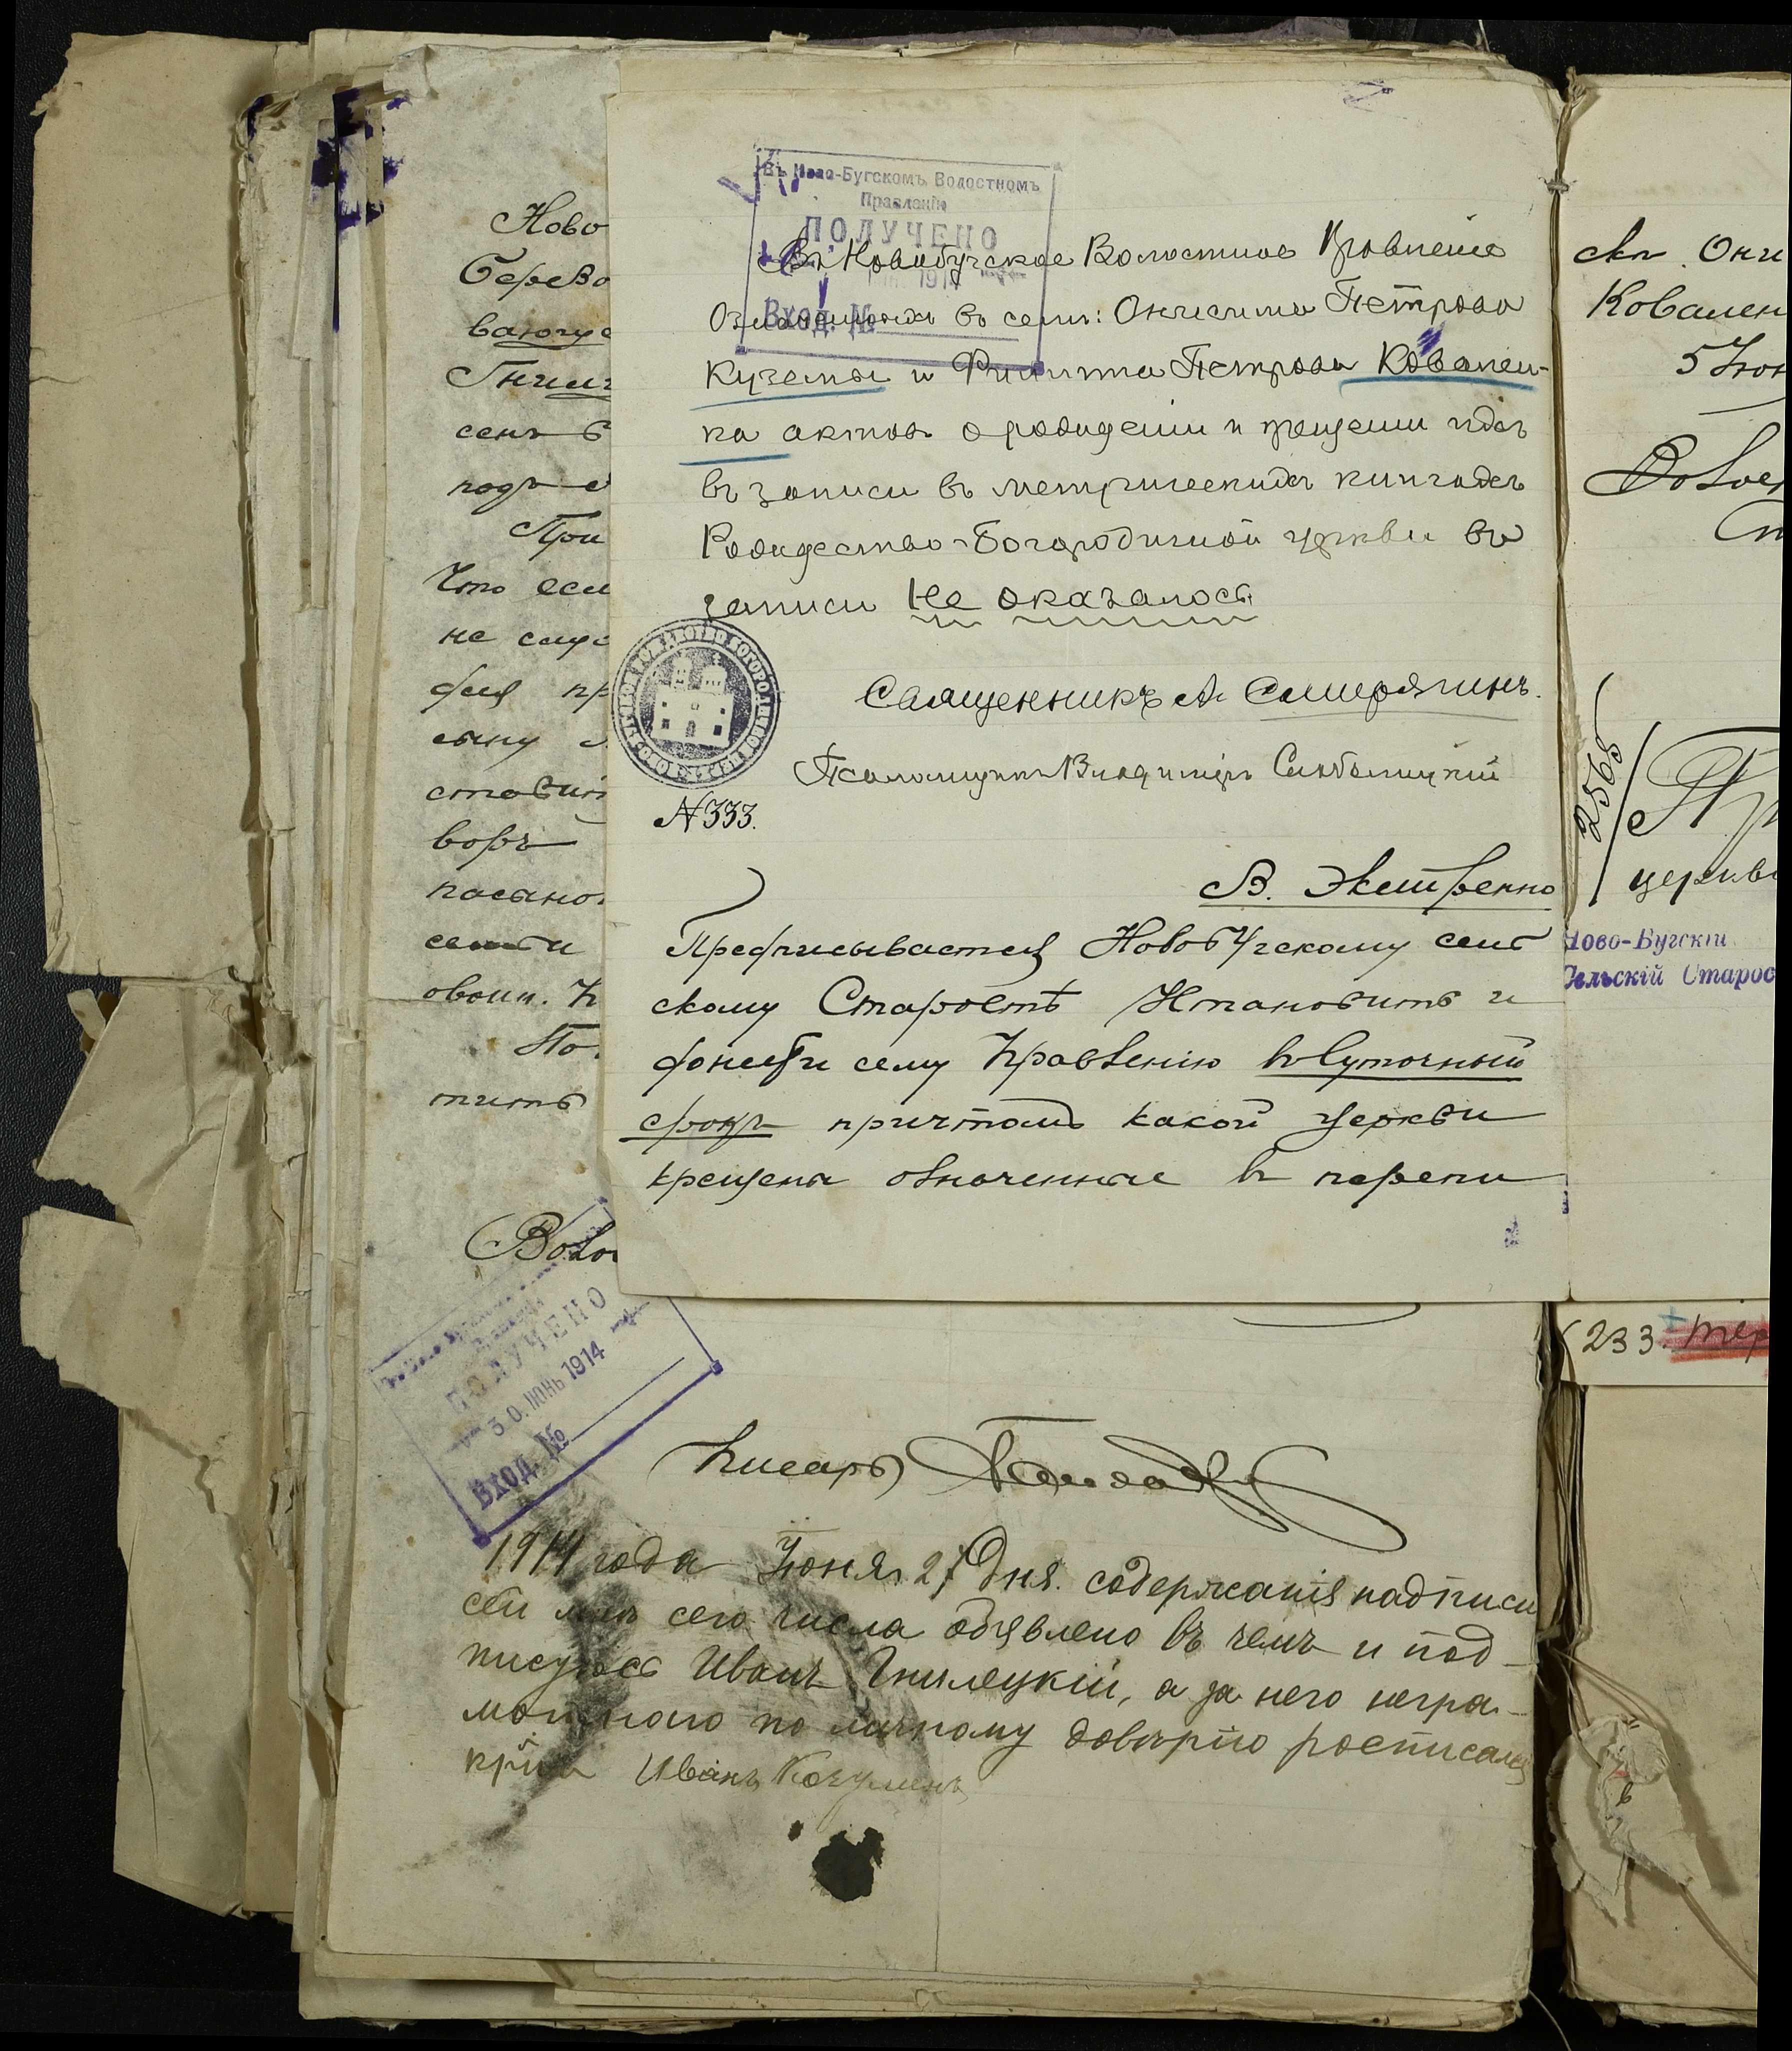 Въ Ново-Бугскомъ Волостномъ
Правленіи
ПОЛУЧЕНО
191
Вход. №
Въ Новобугское Волостное Правленіе
въ семъ: Онисима Петрова
Куземы и Филиппа Петрова Ковален-
ка актовъ о рожденіи и крещеніи ихъ
въ записи въ метрическихъ книгахъ
Рождество-Богородичной церкви въ
записи не оказалось
Священникъ А. Смирягинъ.
Псаломщикъ Владиміръ
№ 333.
В. Экстренно
Предписывается Новобугскому сель
скому Старостѣ Установить и
донести сему Правленію въ суточный
срокъ причтомъ какой церкви
крещены означенные въ перепи
Ново
Берево
ваюгус
Гнили
сенъ
подъ
При
Что если
не слу
для пр
сыну
становит
воръ
писано
По
тить
Волос
ПОЛУЧЕНО
30. ІЮНЬ 1914
Вход. №
Писарь
1914 года Іюня 27 Дня. содержанія надписи
сей мнѣ сего числа объявлено въ чемъ и под-
писуюсь Иванъ Гнилецкій, а за него негра-
мотного по личному довѣрію росписался
Иванъ Козуменъ
скп. Они
Ковален
5 Іюн
Волос
2565
церкви
Ново-Бугскій
Сельскій Старос
233. тер